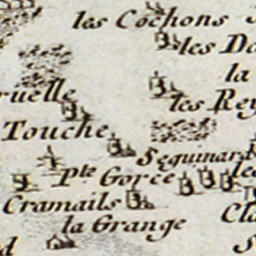 les Cochons
les De
la
ruelle
les Rey
Touche
Seguinard
Pte Gorce
les
Cramails
la Grange
Cla
S
d